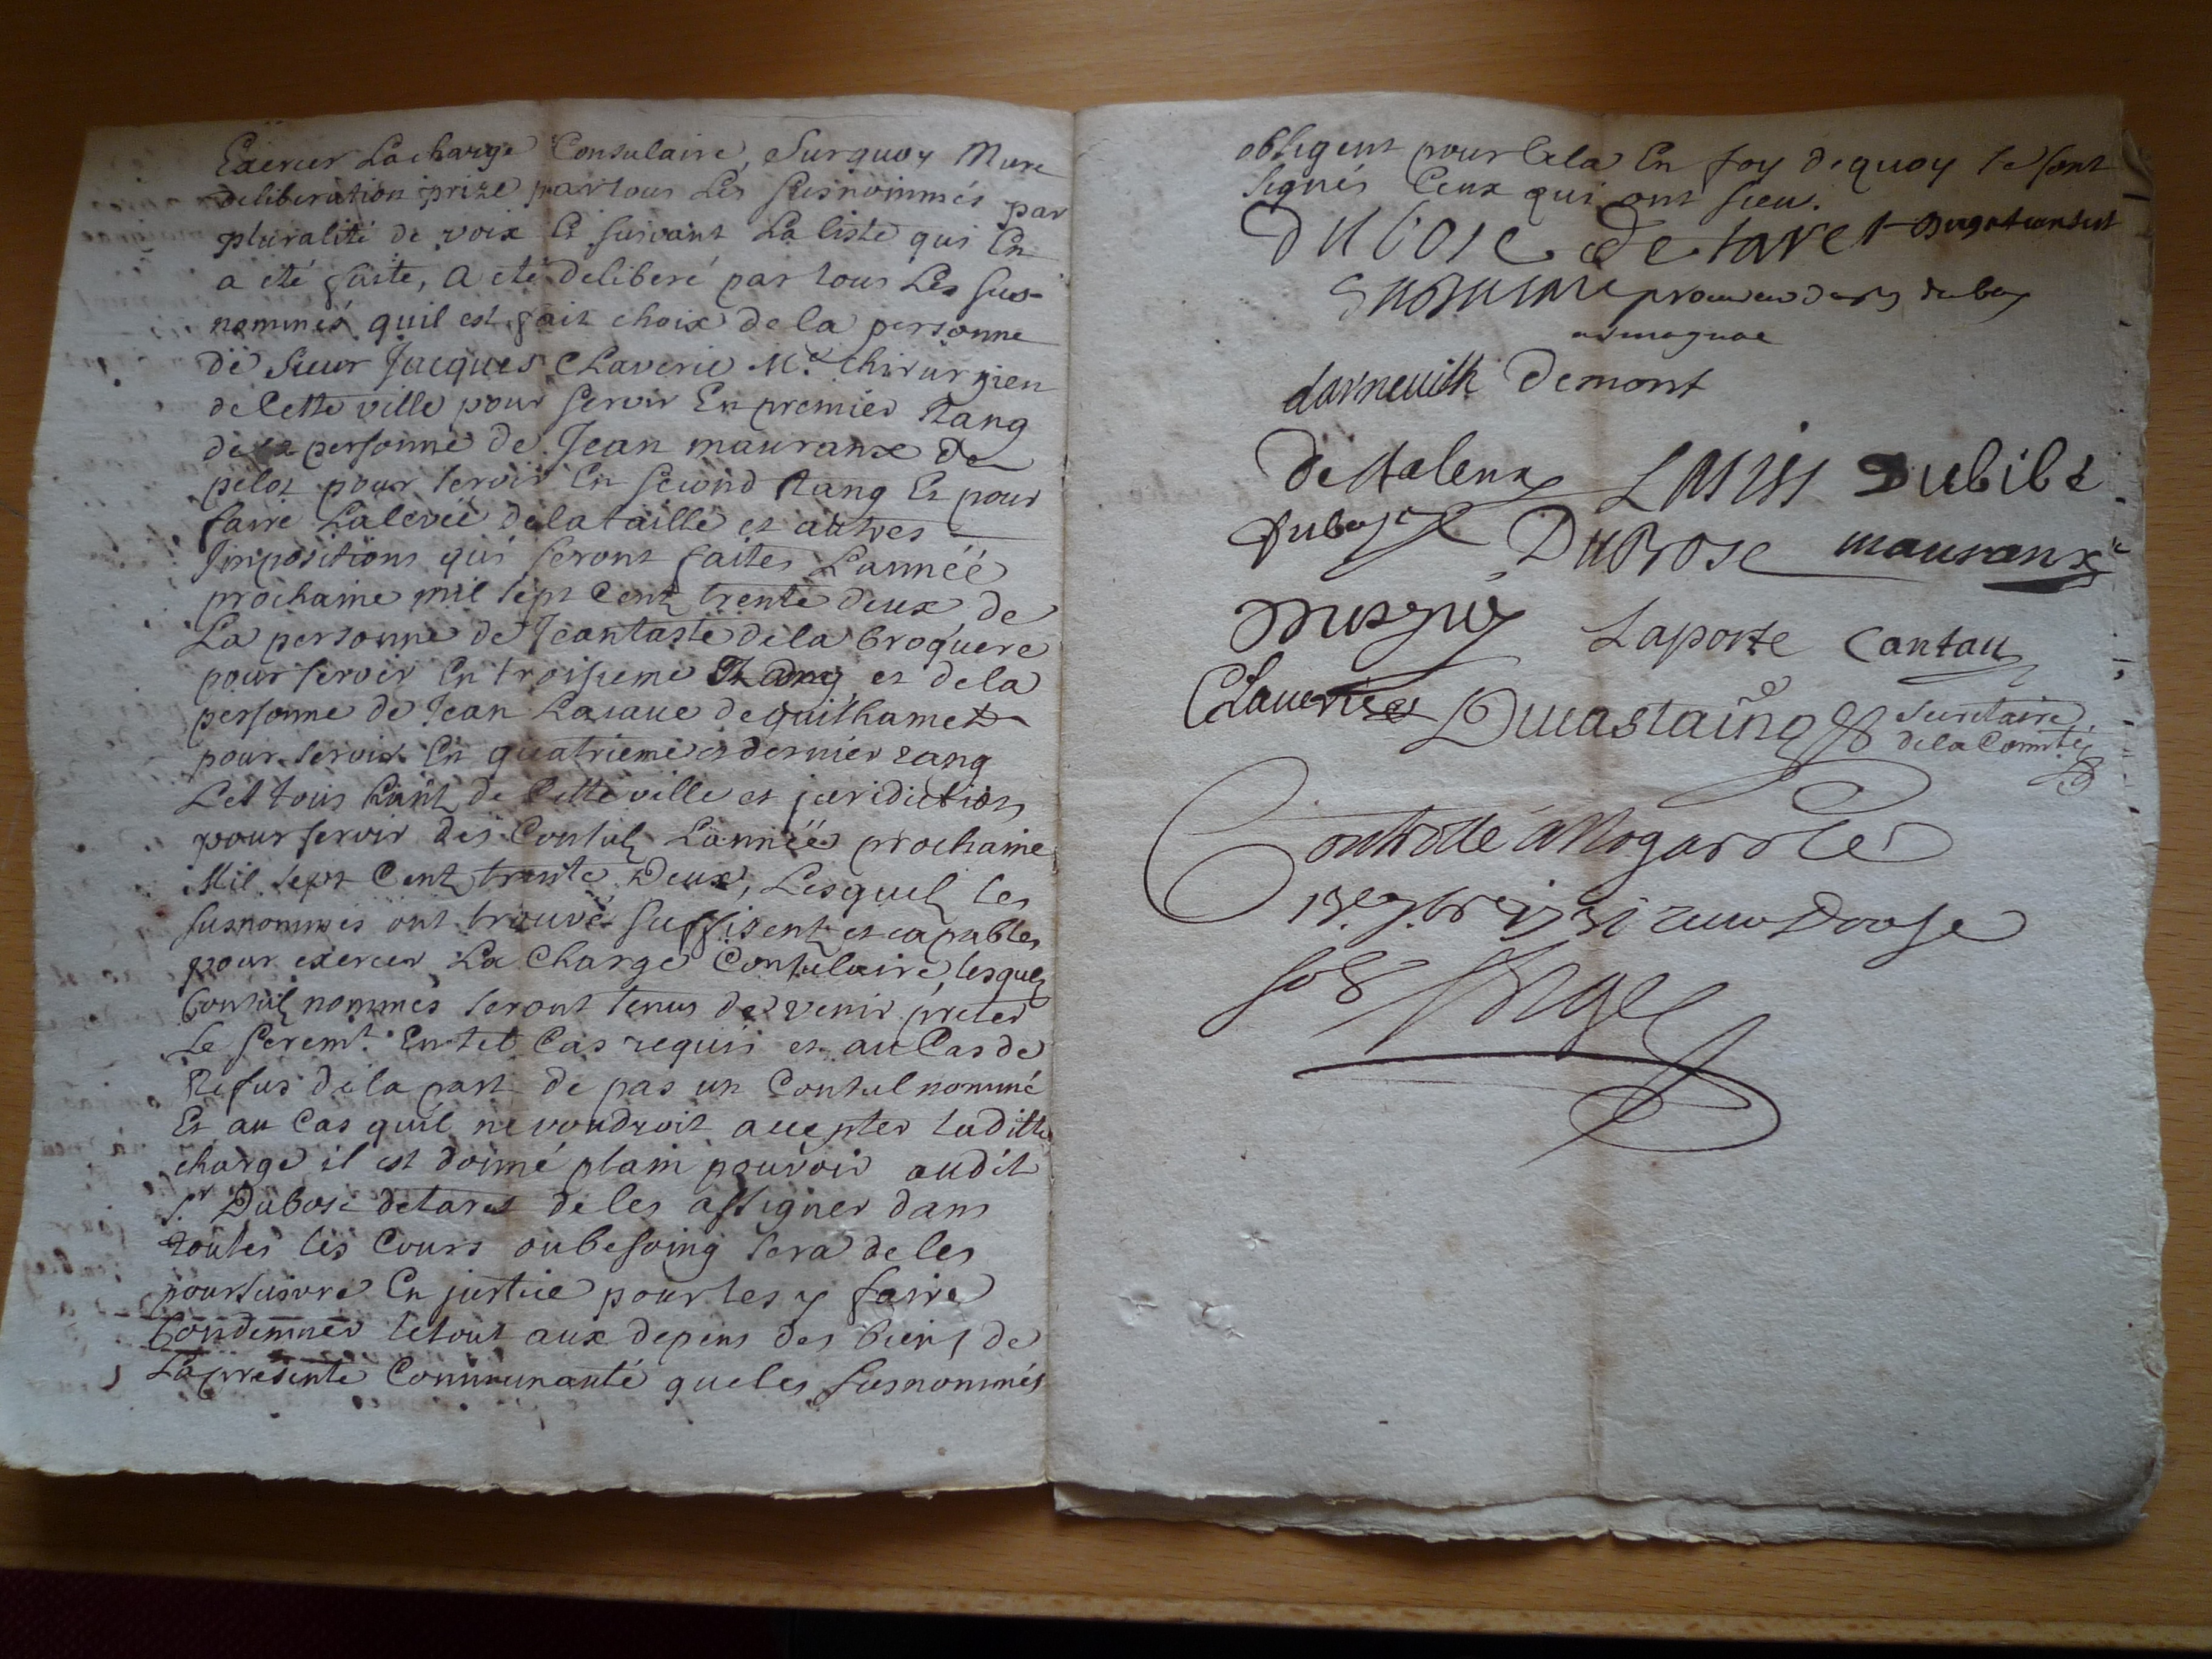 Exercer La charge Consulaire, Surquoy Mure
deliberation prize par tous Les susnommés par
pluralité de voix Et suivant La liste qui En
a eté faite, a eté deliberé par tous Les sus-
nommés quil est fait choix de la personne
de Sieur Jacques Claverie Me. chirurgien
de Cette ville pour servir En premier Rang
de la personne de Jean mauranx de
pelot pour servir En second Rang Et pour
faire La levée de la taille et autres
Impositions qui seront faites L'année
prochaine mil sept Cent trente deux de
La personne de Jean taste de la broquere
pour servir En troisieme Rang et de la
personne de Jean Lasaue de guilhamet
pour servir En quatrieme et dernier rang
Les tous de Cette ville et juridiction
pour servir des Consuls L'année prochaine
Mil sept Cent trente Deux, Lesquels les
susnommés ont trouvé suffisents et capables
pour exercer La Charge Consulaire, lesquels
Consuls nommés seront tenus de venir préter
Le seremt. En tel Cas requis et au Cas de
Refus de la part de pas un Consul nommé
Et au Cas quil ne voudroit accepter ladite
charge il est donné plain pouvoir audit
sr. Dubosc detaret de les assigner dans
toutes les Cours ou besoing sera de les
poursuivre En justice pour les y faire
Condemner le tout aux depens des biens de
La presente Communauté que les susnommés
obligent pour Cela En foy dequoy se sont
signés Ceux qui ont sceu.
Dubosc Detaret
armagnac
darneuilh Demont
Dubosc mauranx
Laporte Cantau
Claverie Ducastaing secretaire
de la Comté
Controllé a Nogaro le
13e. 7bre 1731 receu Douze
sols